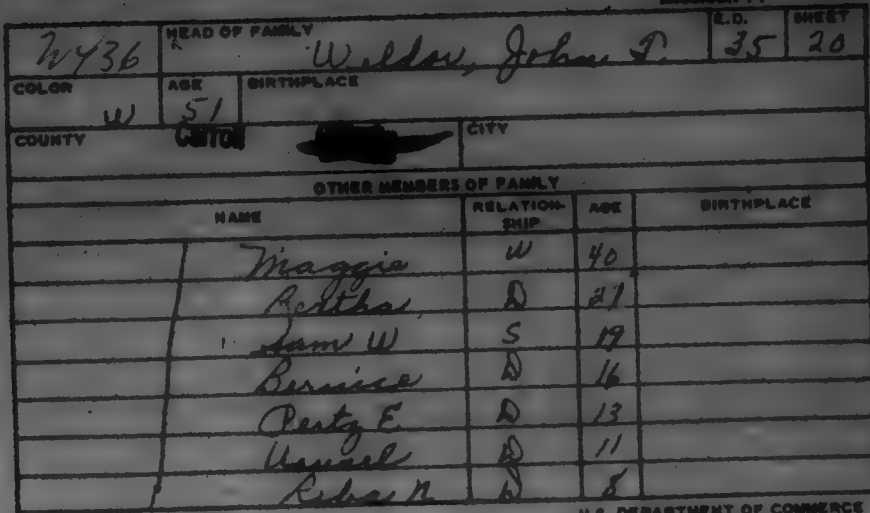 HEAD OF FAMILY E.D. SHEET
W436 Weldon, John T. 35 20
COLOR AGE BIRTHPLACE
W 51
COUNTY CITY
OTHER MEMBERS OF FAMILY
NAME RELATION-SHIP AGE BIRTHPLACE
Maggie W 40
Bertha D 21
Sam W S 19
Bernice D 16
D 13
D 11
Reba N D 8
U.S. DEPARTMENT OF COMMERCE